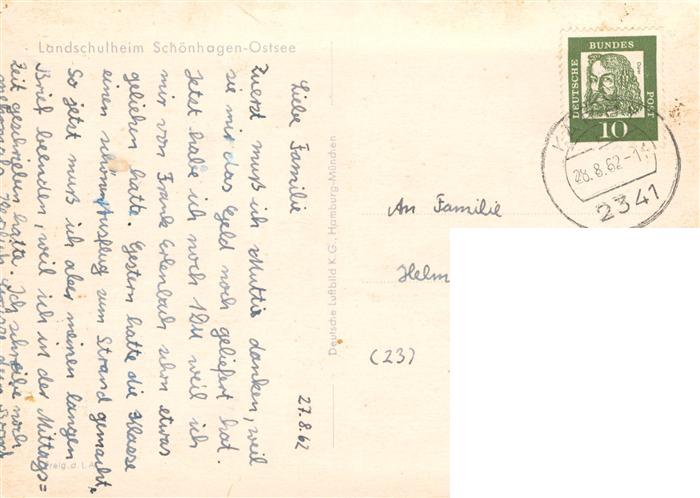 Landschulheim Schönhagen-Ostsee
27.8.62
Liebe Familie
Zuerst muß ich Muttie danken, weil
sie mir das Geld noch geliefert hat.
Jetzt habe ich noch 1DM weil ich
mir von Frank Erlenbach schon etwas
geliehen hatte. Gestern hatte die Klasse
einen schönen Ausflug zum Strand gemacht,
So jetzt muß ich aber meinen langen
Brief beenden, weil ich in der Mittags=
Zeit geschrieben hatte. Ich schreibe noch
Deutsche Luftbild K.G. Hamburg-München
DEUTSCHE
BUNDES
POST
Dürer
10
28.8.62-1
2341
An Familie
Helm
(23)